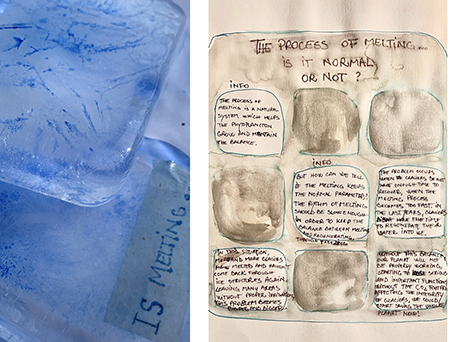 IS MELTING..
THE PROCESS OF MELTING...
IS IT NORMAL,
OR NOT?
INFO
THE PROCESS OF
MELTING IS A NATURAL
SYSTEM WHICH HELPS
THE PHYTOPLANKTON
GROW AND MAINTAIN
THE BALANCE.
INFO
BUT HOW CAN WE TELL
IF THE MELTING KEEPS
THE NORMAL PARAMETERS?
THE RYTHM OF MELTING
SHOULD BE SLOW ENOUGH
IN ORDER TO KEEP THE
BALANCE BETWEEN MELTING
AND REGENERATING
THROUGH
THE PROBLEM OCCURS
WHEN GLACIERS DO NOT
HAVE ENOUGH TIME TO
RECOVER, WHEN THE
MELTING PROCESS
BECOMES TOO FAST. IN
THE LAST YEARS, GLACIERS
HAVE THE TIME
TO THE
WATER INTO ICE.
IN THIS SITUATION,
MORE AND MORE GLACIERS
HAVE MELTED AND DIDN'T
COME BACK THROUGH
ICE STRUCTURES AGAIN
LEAVING MANY AREAS
WITHOUT PROPER
THIS PROBLEM BECOMES
BIGGER AND BIGGER
WITHOUT THIS
OUR PLANET WILL NOT
BE PROPERLY WORKING,
STARTING TO
AND IMPORTANT FUNCTIONS
WITHOUT THE CO2
AFFECTING THE INTEGRITY
OF GLACIERS, WE COULD
START SAVING THE
PLANET NOW!